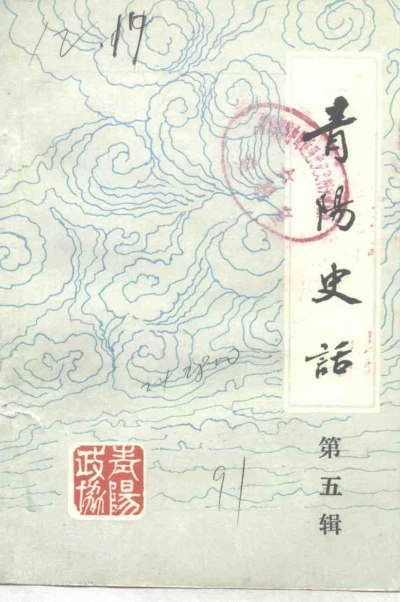 12.17
青陽史話
第五辑
青陽政協
91